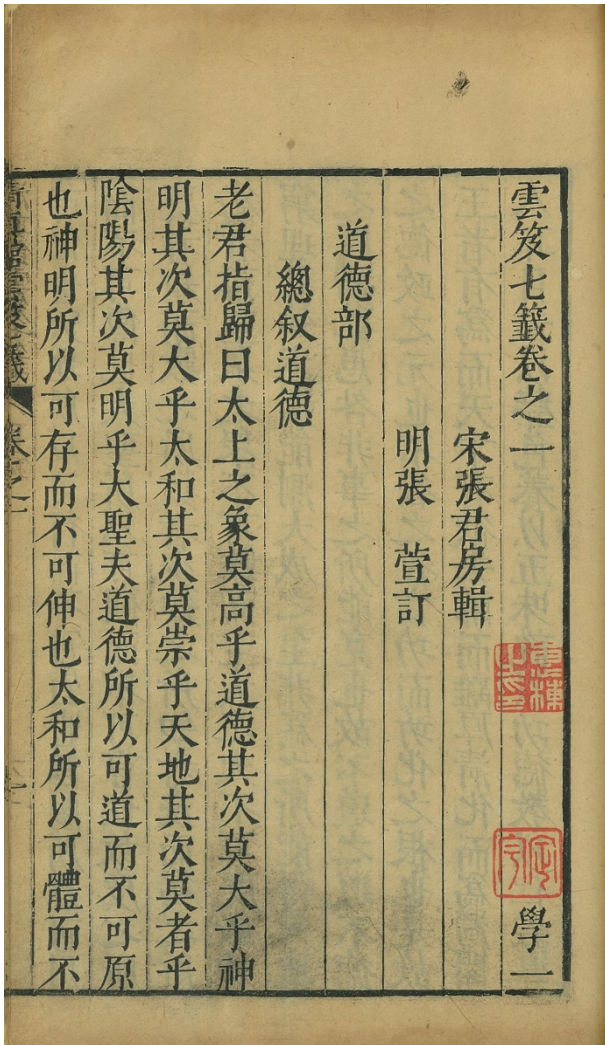 雲笈七籤卷之一 學一
宋張君房輯
明張 萱訂
道德部
總叙道德
老君指歸曰太上之象莫高乎道德其次莫大乎神
明其次莫大乎太和其次莫崇乎天地其次莫者乎
陰陽其次莫明乎大聖夫道德所以可道而不可原
也神明所以可存而不可伸也太和所以可體而不